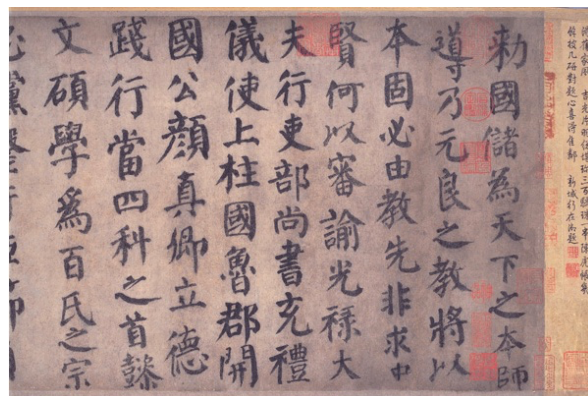 勑國儲為天下之本師
導乃元良之教將以
本固必由教先非求忠
賢何以審諭光祿大
夫行吏部尚書充禮
儀使上柱國魯郡開
國公顏真卿立德
踐行當四科之首懿
文碩學爲百氏之宗